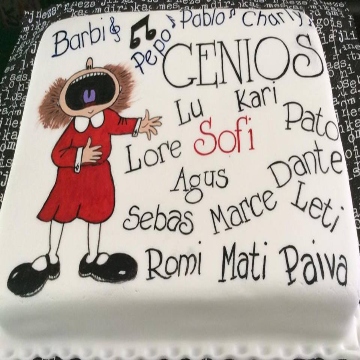 Barbi Pepo Pablo Charly
GENIOS
Lu Kari Pato
Lore Sofi
Agus Dante
Sebas Marce Leti
Romi Mati Paiva